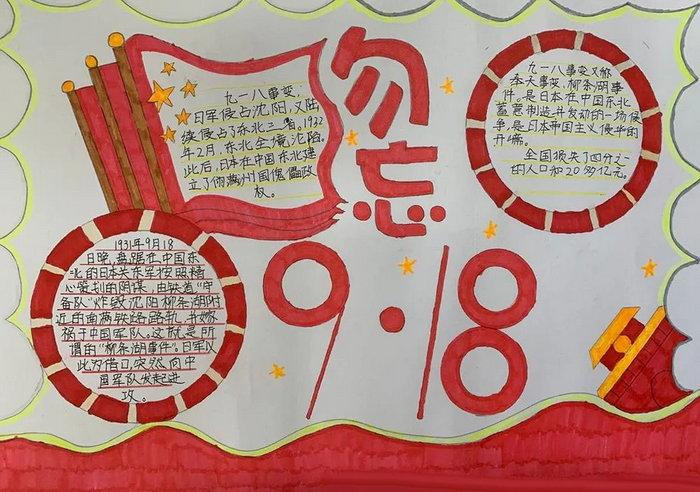 勿忘
9·18
九一八事变:
日军侵占沈阳,又陆
续侵占了东北三省。1932
年2月,东北全境沦陷。
此后,日本在中国东北建
立了伪满州国傀儡政
权。
九一八事变又称
奉天事变、柳条湖事
件。是日本在中国东北
蓄意制造并发动的一场侵
争,是日本帝国主义侵华的
开端。
全国损失了四分之一
的人口和20多亿元。
1931年9月18
日晚,盘踞在中国东
北的日本关东军按照精
心策划的阴谋,由铁道"守
备队"炸毁沈阳柳条湖附
近的南满铁路路轨,并嫁
祸于中国军队。这就是所
谓的"柳条湖事件"。日军以
此为借口,突然向中
国军队发起进
攻。